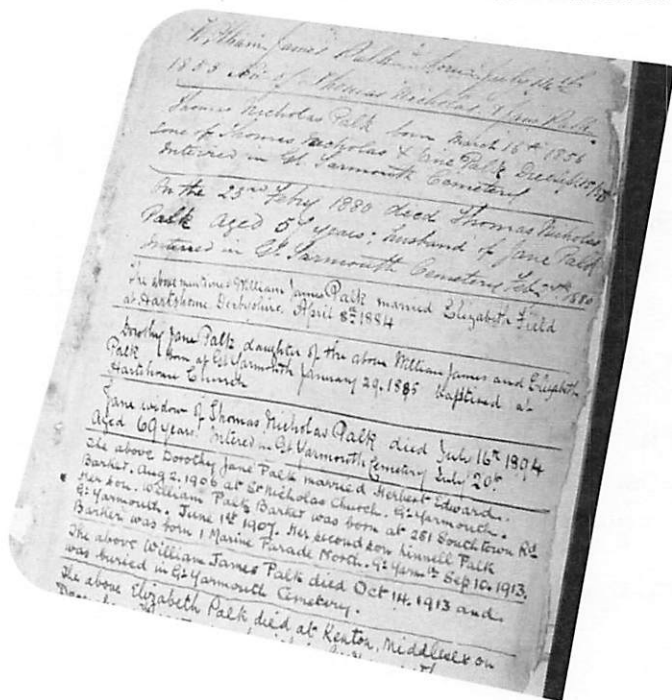 William James Palk born July 14th
1855 son of Thomas Nicholas & Jane Palk.
Thomas Nicholas Palk born March 16th 1856
Sone of Thomas Nicholas & Jane Palk
Interred in Gt. Yarmouth Cemetery
On the 23rd Feby 1880 died Thomas Nicholas
Palk aged 59 years; husband of Jane Palk
Interred in Gt Yarmouth Cemetery Feby 1880
The above mentioned William James Palk married Elizabeth Field
at Hartshorne Derbyshire. April 8th 1884
Dorothy Jane Palk daughter of the above William James and Elizabeth
Palk born at Gt Yarmouth January 29. 1885 baptized at
Hartshorne Church
Jane widow of Thomas Nicholas Palk died July 16th 1894
Aged 69 years. Intered in Gt Yarmouth Cemetery July 20th
The above Dorothy Jane Palk married Herbert Edward.
Barker. Aug 2. 1906 at St Nicholas Church. Gt Yarmouth.
Her son. William Palk Barker was born at 251 Southtown Rd
Gt Yarmouth. June 1st 1907. Her second son Linnell Palk
Barker was born 1 Marine Parade North. Gt Yarmth Sep 10. 1913.
The above William James Palk died Oct 14. 1913 and.
was buried in Gt Yarmouth Cemetery.
The above Elizabeth Palk died at Kenton, Middlesex on